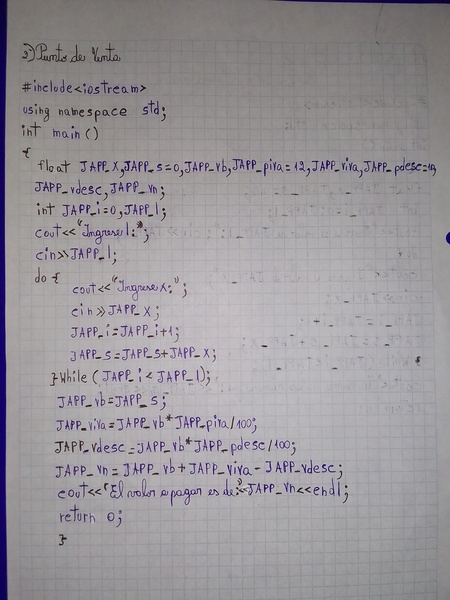 2) Punto de Venta
#include<iostream>
using namespace std;
int main()
{
float JAPP_X,JAPP_S=0,JAPP_vb,JAPP_piva=12,JAPP_viva,JAPP_pdesc=10,
JAPP_vdesc,JAPP_vn;
int JAPP_i=0,JAPP_l;
cout<<"Ingrese l:";
cin>>JAPP_l;
do {
cout<<"Ingrese x:";
cin>>JAPP_x;
JAPP_i=JAPP_i+1;
JAPP_s=JAPP_s+JAPP_x;
}While(JAPP_i<JAPP_l);
JAPP_vb=JAPP_s;
JAPP_viva=JAPP_vb*JAPP_piva/100;
JAPP_vdesc=JAPP_vb*JAPP_pdesc/100;
JAPP_vn=JAPP_vb+JAPP_viva-JAPP_vdesc;
cout<<"El valor a pagar es de:"<<JAPP_vn<<endl;
return 0;
}